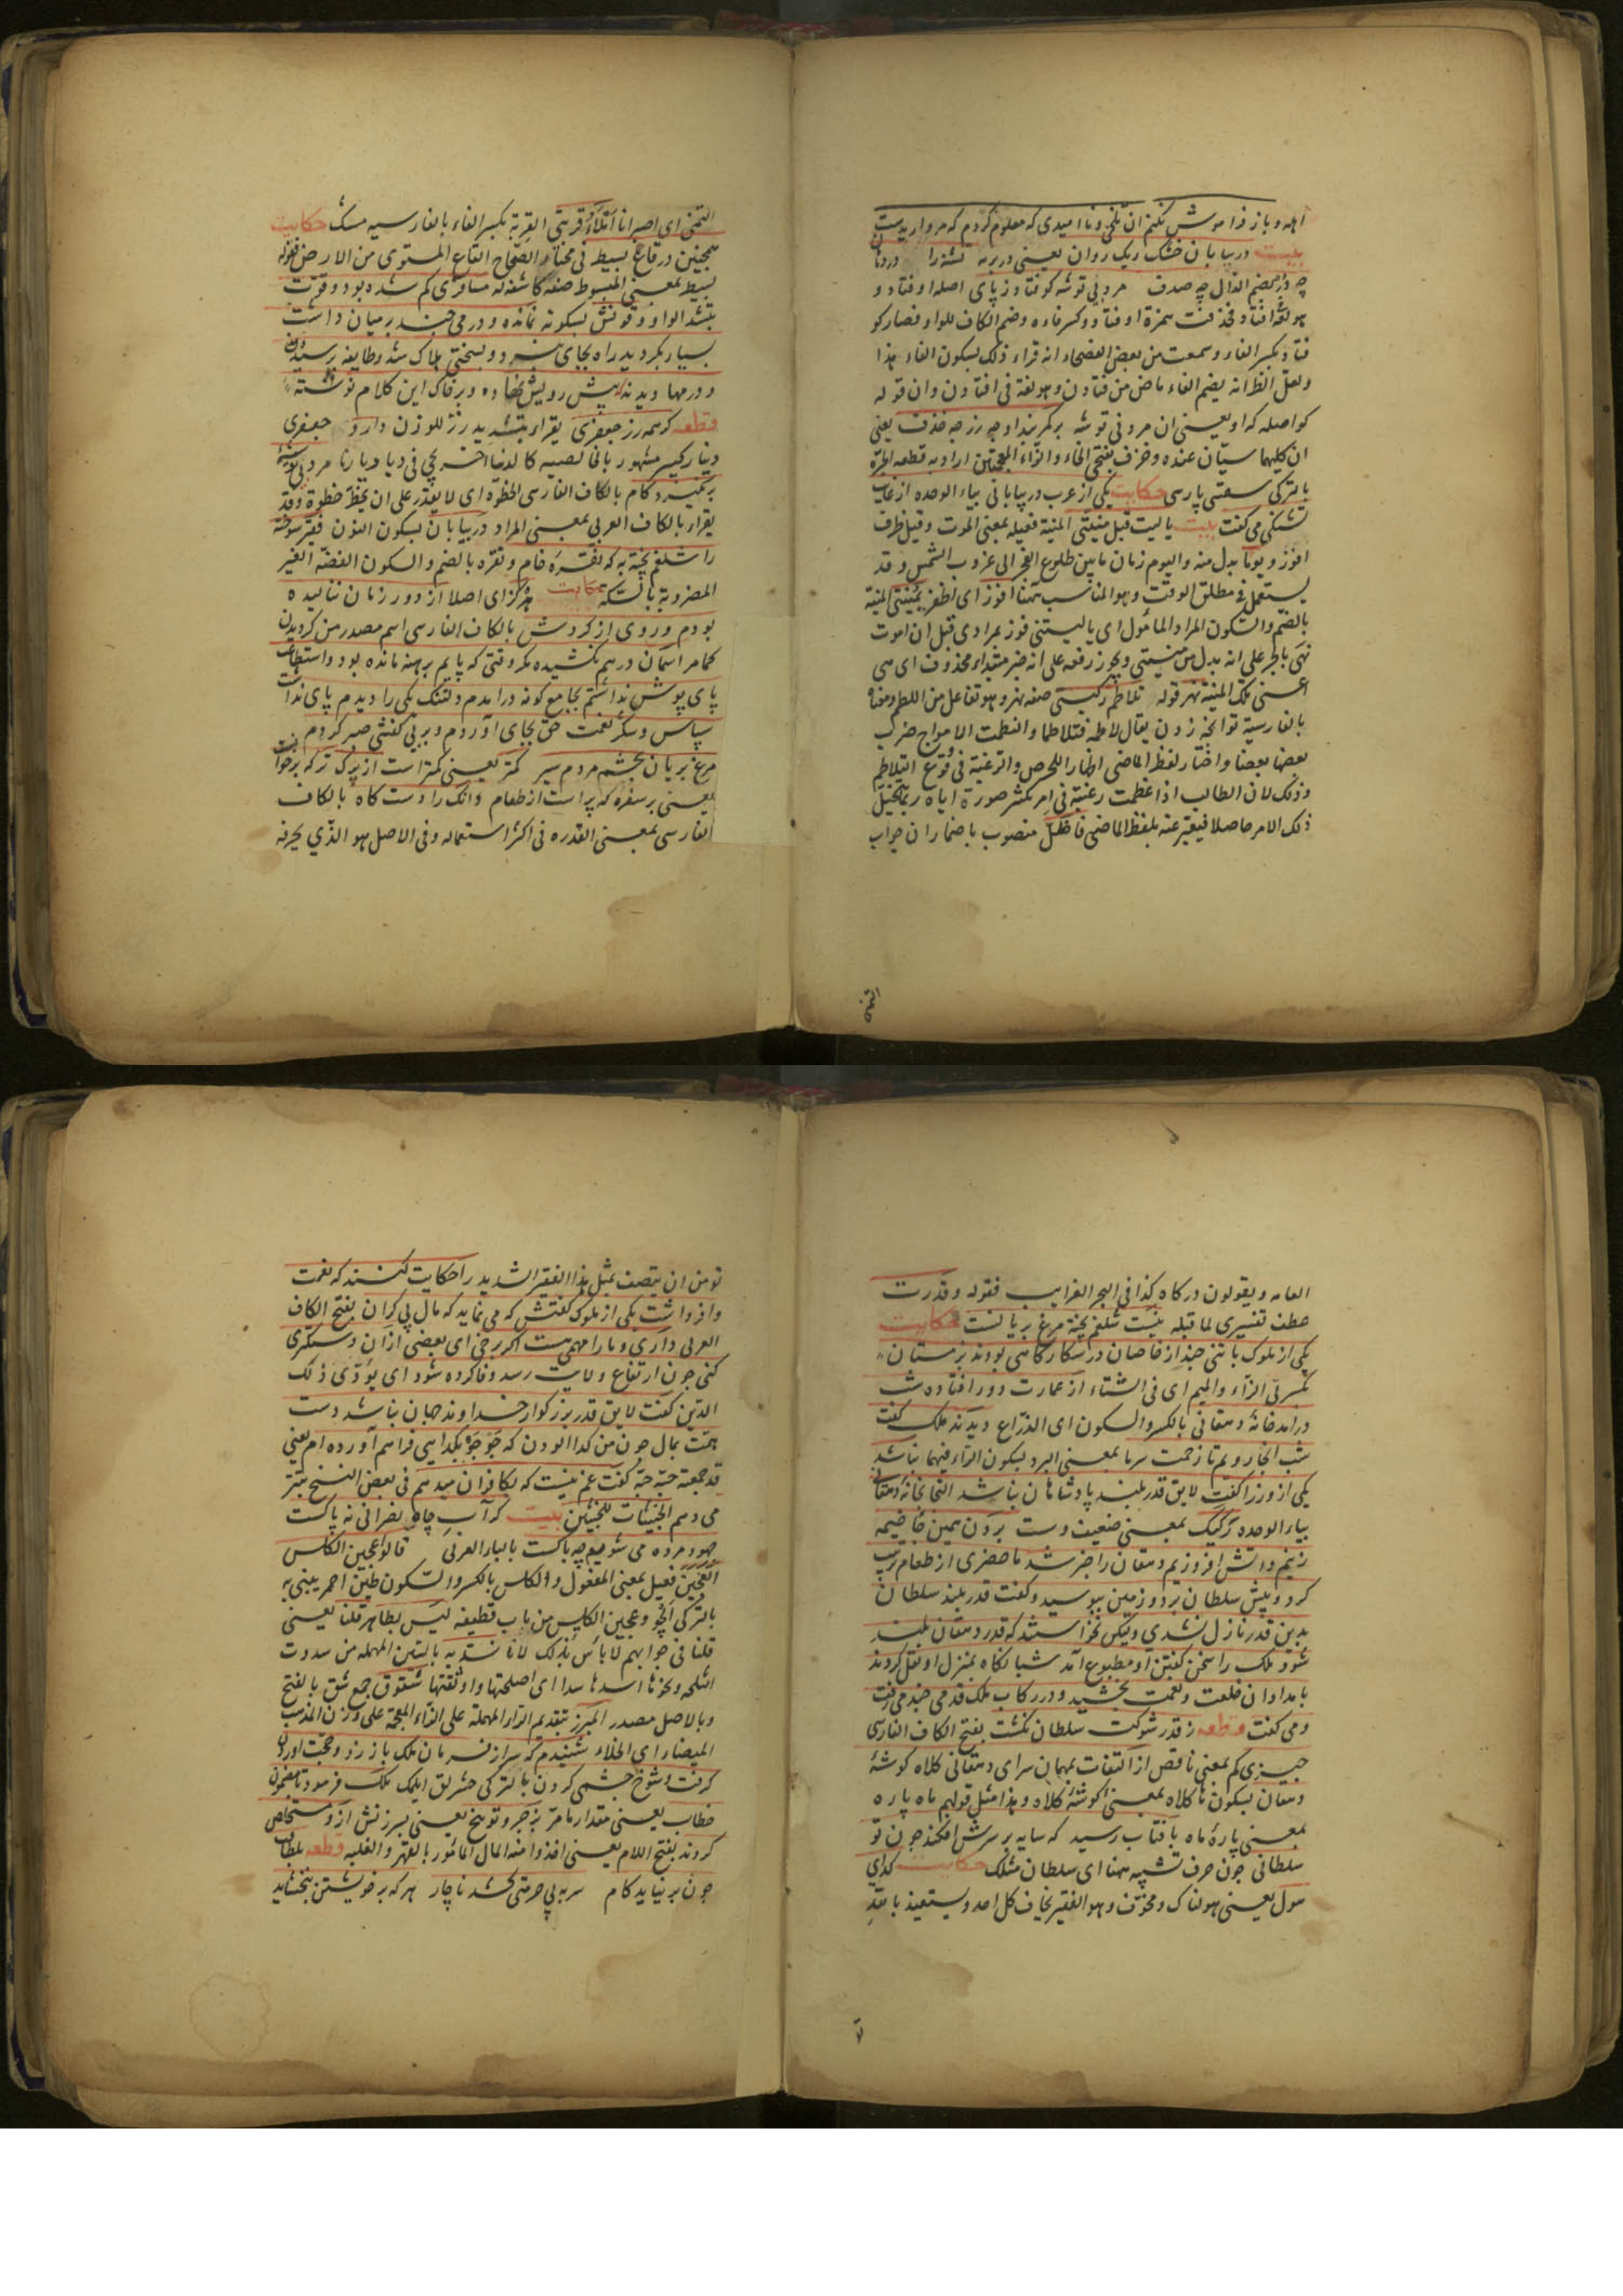 اهله و باز فراموش نکنم ان تلخی و ناامیدی که معلوم کردم که مرواریدست
بیت در بیابان خشک ریک روان یعنی در بریه تشنه را در دهان
چه در بضم الدال چه صدف مرد بی توشه کوفتاد ز پای اصله اوفتاد و
هو لغة افتاد فحذفت همزة اوفتاد و کسر فاءه و ضم الکاف للواو فصار کو
فتاد بکسر الفاء و سمعت من بعض الفصحاء انه قراء ذلک بسکون الفاء هذا
ولعل النظر انه بضم الفاء ماض من فتادن و هو لغة فی افتادن وان قوله
کو اصله که او یعنی ان مرد بی توشه بر کمر بند او چه زر چه خزف یعنی
ان کلیهما سیان عنده و خزف بفتحی الخاء و الزاء المعجمتین اراد به قطعه الجرة
بالترکی سقسی پارسی حکایت یکی از عرب در بیابانی بیاء الوحده از غایت
تشنکی می کفت بیت یا لیت قبل منیتی المنیة فعیله بمعنی الموت و قیل ظرف
افوز و یوما بدل منه و الیوم زمان ما بین طلوع الفجر الی غروب الشمس و قد
یستعمل فی مطلق الوقت و هو المناسب ههنا افوز ای اظفر بمنیتی المنیة
بالضم و السکون المراد و المأمول ای یا لیتنی فوز بمرادی قبل ان اموت
نهر بالجر علی انه بدل من منیتی و یجوز رفعه علی انه خبر مبتداء محذوف ای هی
اعنی تلک المنیة نهر قوله تلاطم رکبتی صفه نهر و هو تفاعل من اللطم و معناه
بالفارسیة توانجه زدن یقال لاطمه فتلاطما و التطمت الامواج ضرب
بعضها بعضا و اختار لفظ الماضی اظهارا للحرص و الرغبة فی وقوع التلاطم
و ذلک لان الطالب اذا عظمت رغبته فی امر یکثر صورة ایاه ربما یخیل
ذلک الامر حاصلا فیعبر عنه بلفظ الماضی فاظل منصوب باضمار ان جواب
التمنی
التمنی ای اصیر انا املاء قربتی القربة بکسر الفاء بالفارسیه مشک حکایت
همچنین در قاع بسیط فی مختار الصحاح القاع المستوی من الارض فقوله
بسیط بمعنی المبسوط صفه کاشفه له مسافری کم شده بود و قوت
بتشد الواو و قوتش بسکونه نمانده و درمی چند بر میان داشت
بسیار بکردید راه بجای نبرد و بسختی هلاک شد و طایفه برسیدند
و درمها دیدند پیش رویش نهاده و بر خاک این کلام نوشته
قطعه کر همه زر جعفری یقراء بتشدید زر للوزن دارد جعفری
دینار کبیر مشهور
مرد بی توشه
بر نکیرد کام بالکاف الفارسی الخطوة ای لا یقدر علی ان یخط خطوة و قد
یقرا بالکاف العربی بمعنی المراد در بیابان بسکون النون فقیر سوخته
را شلغم پخته به که نقره خام و نقره بالضم و السکون الفضة الغیر
المضروبة بالسکة حکایت هرکز ای اصلا از دور زمان ننالیده
بودم و روی از کردش بالکاف الفارسی اسم مصدر من کردیدن
کما مر اسمان درهم نکشیده مکر وقتی که پایم برهنه مانده بود و استطاعت
پای پوش نداشتم بجامع کوفه درامدم دلتنک یکی را دیدم پای نداشت
سپاس و شکر نعمت حق بجای آوردم و بر بی کفشی صبر کردم بیت
مرغ بریان بچشم مردم سیر کمتر یعنی کمتر است از برک تره بر خوان
یعنی بر سفره که پر است از طعام وانک را دست کاه بالکاف
الفارسی بمعنی القدره فی اکثر استعماله و فی الاصل هو الذی یحرفه
العامه و یقولون درکاه کذا فی البحر الغرایب فقوله و قدرت
عطف تفسیری لما قبله نیست شلغم پخته مرغ بریانست حکایت
یکی از ملوک با تنی چند از خاصان در شکارکاهی بودند بزمستان
بکسرتی الزاء و المیم ای فی الشتاء از عمارت دور افتاده شب
درامد خانهٔ دهقانی بالکسر و السکون ای الذراع دیدند ملک کفت
شب انجا رویم تا زحمت سرما بمعنی البرد بسکون الراء فیهما نباشد
یکی از وزرا کفت لایق قدر بلند پادشاهان نباشد التجا بخانهٔ دهقانی
بیاء الوحده رکیک بمعنی ضعیف دست بردن همین جا خیمه
زنیم و اتش افروزیم دهقان را خبر شد ماحضری از طعام ترتیب
کرد و پیش سلطان برد و زمین ببوسید و کفت قدر بلند سلطان
بدین قدر نازل نشدی ولیکن نخواستند که قدر دهقان بلند
شود ملک را سخن کفتن او مطبوع آمد شبانکاه بمنزل او نقل کردند
بامدادان خلعت و نعمت بخشید و در رکاب ملک قدمی چند می رفت
و می کفت قطعه ز قدر شوکت سلطان نکشت بفتح الکاف الفارسی
چیزی کم بمعنی ناقص از التفات بمهمان سرای دهقانی کلاه کوشهٔ
دهقان بسکون ها کلاه بمعنی کوشهٔ کلاه و هذا مثل قولهم ماه پاره
بمعنی پارهٔ ماه بافتاب رسید که سایه بر سرش افکند چون تو
سلطانی چون حرف تشبیه ههنا ای سلطان مثلک حکایت کدای
هول یعنی هولناک و مخوف و هو الفقیر یخاف کل احد و یستعیذ بالله
تو
تو من ان یتصف بمثل هذا الفقر الشدید را حکایت کنند که نعمت
وافر داشت یکی از ملوک کفتش که می نماید که مال بی کران بفتح الکاف
العربی داری و ما را مهمی هست اکر برخی ای بعضی ازان دستکیری
کنی چون ارتفاع ولایت رسد وفا کرده شود ای یؤدی ذلک
الدین کفت لایق قدر بزرکوار خداوند جهان نباشد دست
همت بمال چون من کدا الودن که جو جو بکدایی فراهم آورده ام یعنی
قد جمعته حبة حبة کفت غم نیست که بکافران میدهم فی بعض النسخ بتتر
می دهم الخبیثات للخبیثین بیت کر آب چاه نصرانی نه پاکست
جهود مرده می شویم چه باکست بالباء العربی قالوا عجین الکلس
العجین فعیل بمعنی المفعول و الکلس بالکسر و السکون طین احمر یبنی به
بالترکی الچو و عجین الکلس من باب قطیفه لیس بطاهر قلنا یعنی
قلنا فی جوابهم لا بأس بذلک لانا نسد به بالسین المهمله من سددت
الثلمه و نحوها اسدها سدا ای اصلحتها و اوثقتها شقوق جمع شق بالفتح
و بالاصل مصدر المبرز بتقدیم الراء المهملة علی الزاء المعجمة علی وزن المذهب
ای الخلاء شنیدم که سراز فرمان ملک باز زد و حجت اوردن
کرفت و شوخ چشمی کردن بالترکی ملک فرمود تا مضمون
خطاب یعنی مقدار ما مر بزجر و توبیخ یعنی بسرزنش ازو مستخلص
کردند بفتح اللام یعنی اخذوا منه المال المأمور بالقهر و الغلبه قطعه بلطافت
چون بر نیاید کام سر به بی حرمتی کشد ناچار هر که بر خویشتن نبخشاید